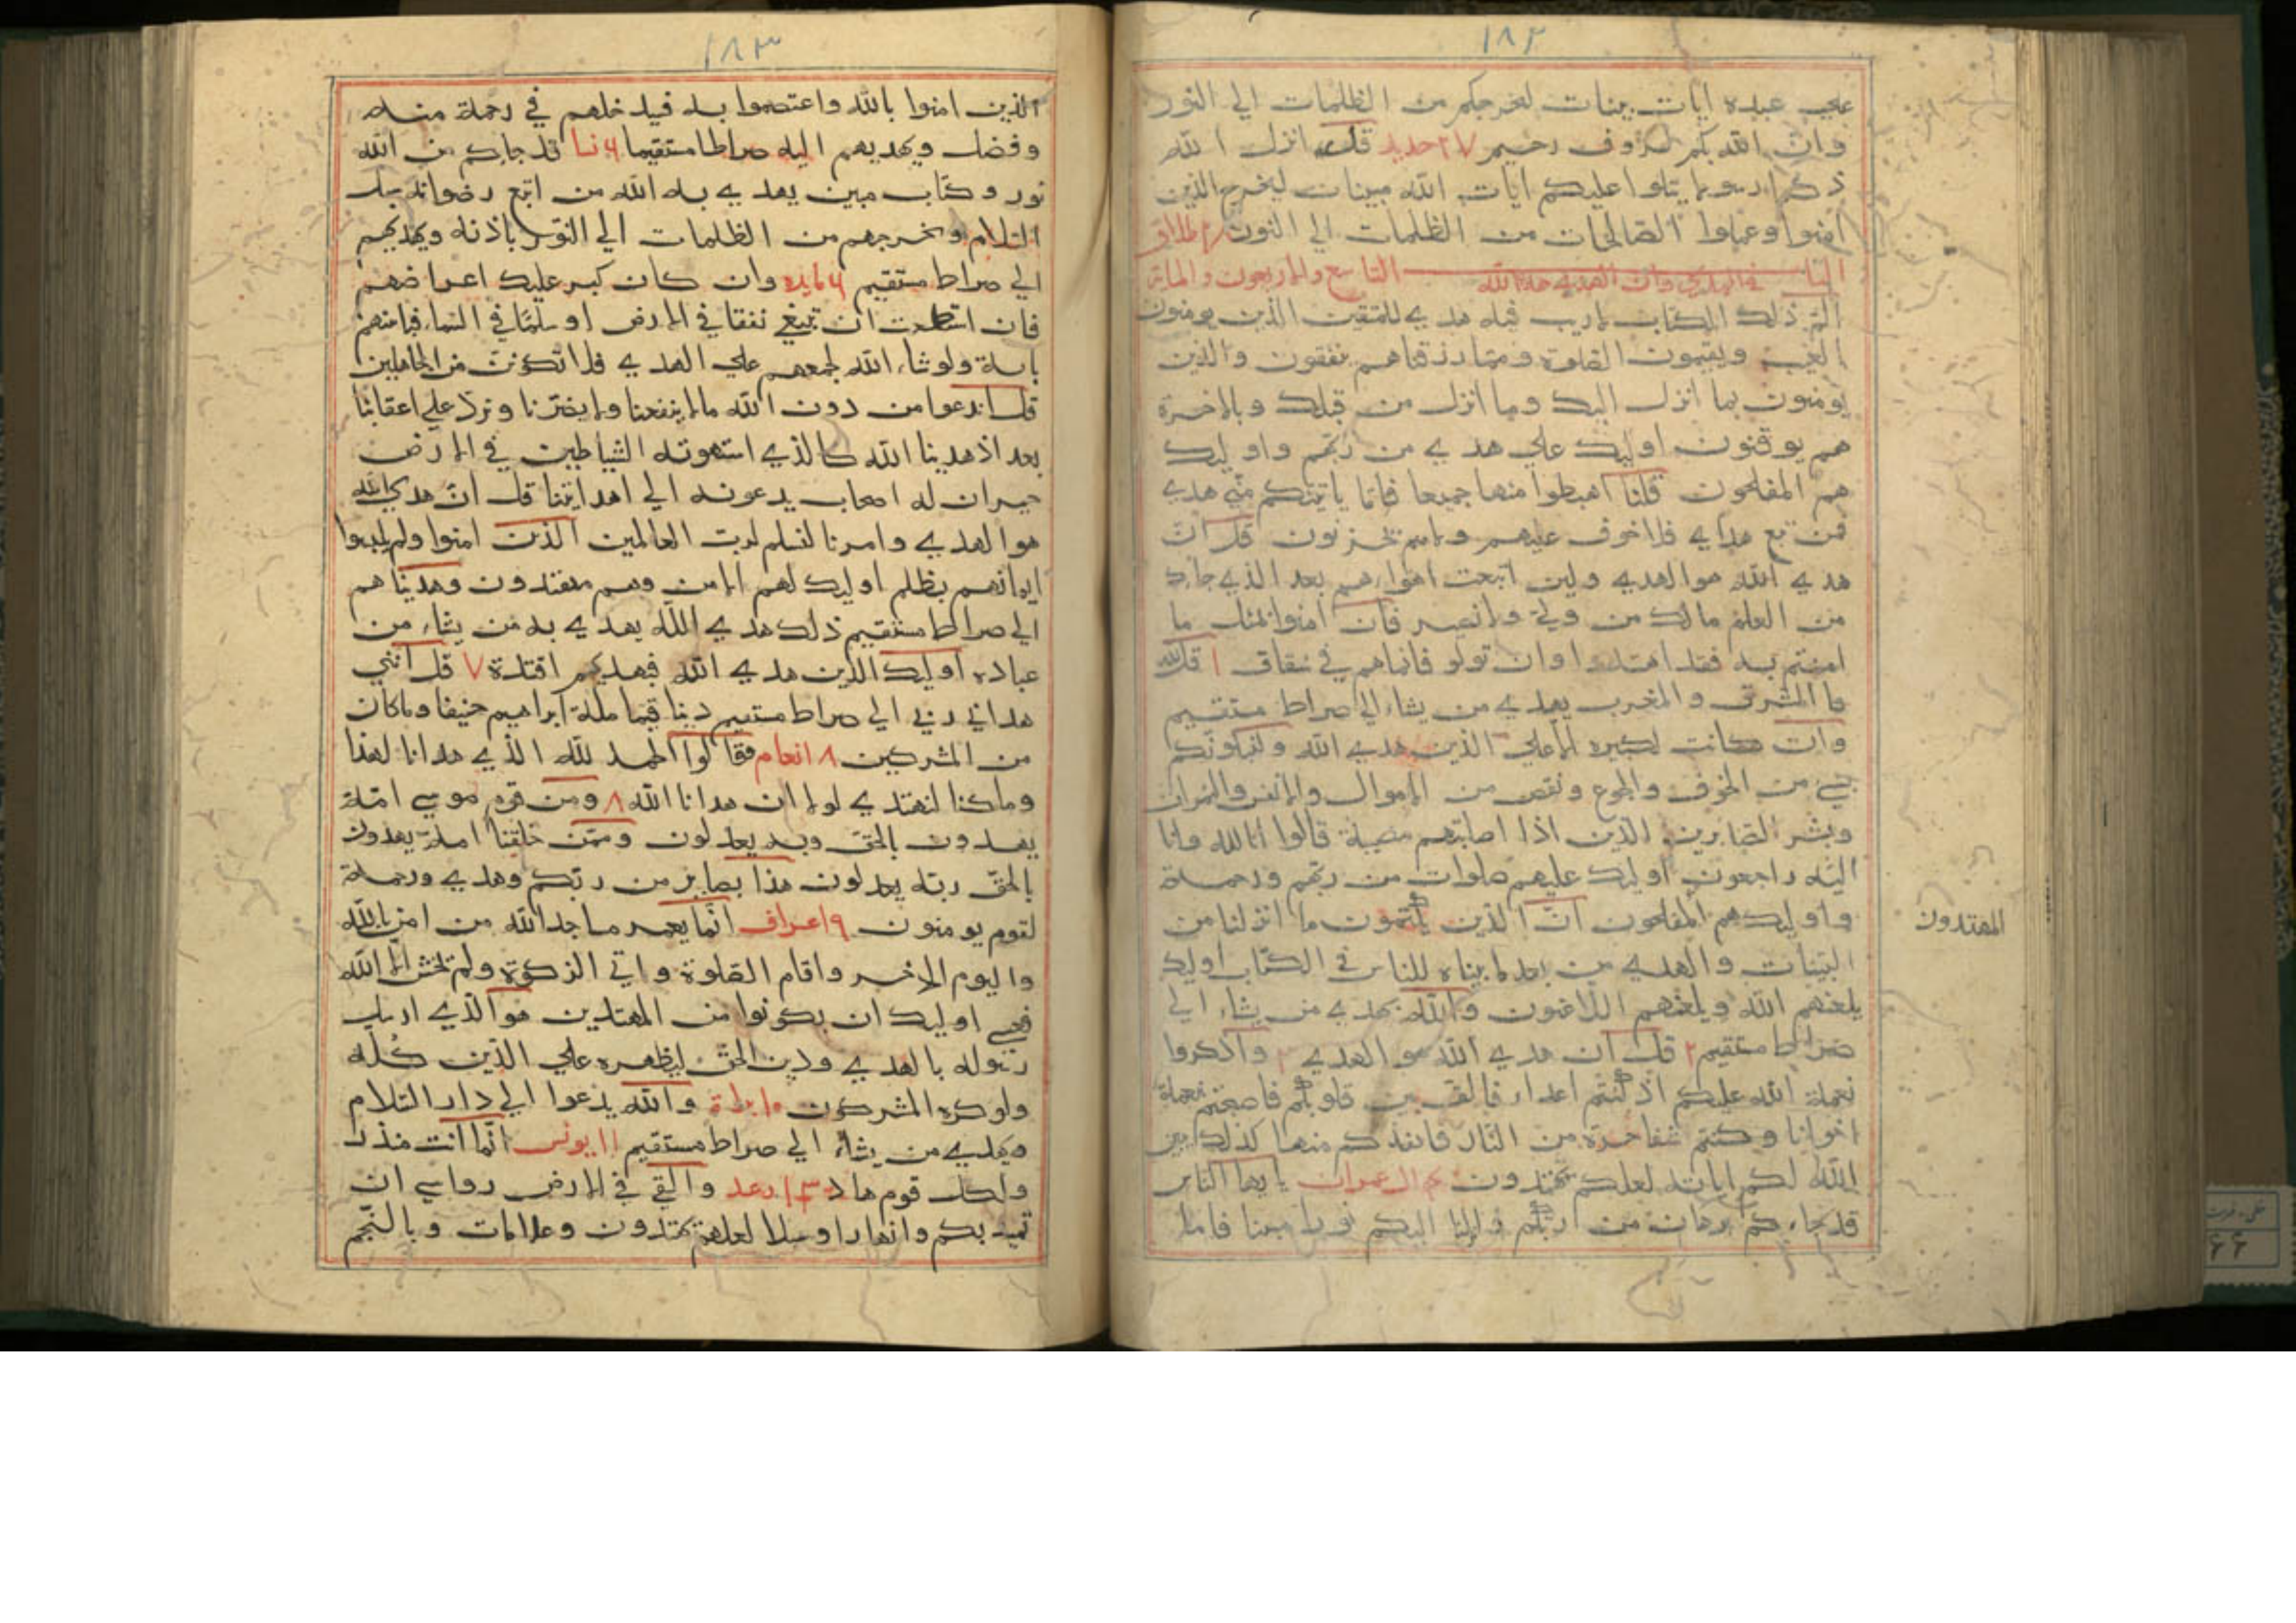 ١٨٢
علي عبده ايات بينات لنخرجكم من الظلمات الي النور
وان الله بكم لروف رحيم ٢٧ حديد قد انزل الله
ذكرا رسولا يتلوا عليكم ايات الله مبينات ليخرج الذين
امنوا وعملوا الصالحات من الظلمات الي النور طلاق
الباب التاسع والاربعون والماية في الهدي وان الهدي هدي الله
الم ذلك الكتاب لاريب فيه هدي للمتقين الذين يومنون
بالغيب ويقيمون الصلوة ومما رزقناهم ينفقون والذين
يومنون بما انزل اليك وما انزل من قبلك وبالاخرة
هم يوقنون اوليك علي هدي من ربهم واوليك
هم المفلحون قلنا اهبطوا منها جميعا فاما ياتينكم مني هدي
فمن تبع هداي فلا خوف عليهم ولاهم يحزنون قل ان
هدي الله هو الهدي ولين اتبعت اهواءهم بعد الذي جاءك
من العلم مالك من ولي ولا نصير فان امنوا بمثل ما
امنتم به فقد اهتدوا وان تولو فانماهم في شقاق ١ قل لله
ما المشرق والمغرب يهدي من يشاء الي صراط مستقيم
وان كانت لكبيرة الا علي الذين هدي الله ولنبلونكم
بشي من الخوف والجوع ونقص من الاموال والانفس والثمرات
وبشر الصابرين الذين اذا اصابتهم مصيبة قالوا انا لله وانا
اليه راجعون اوليك عليهم صلوات من ربهم ورحمة
واوليك هم المفلحون ان الذين يكتمون ما انزلنا من
المهتدون
البينات والهدي من بعد ما بيناه للناس في الكتاب اوليك
يلعنهم الله ويلعنهم اللاعنون والله يهدي من يشاء الي
صراط مستقيم ٢ قل ان هدي الله هو الهدي واذكروا
نعمة الله عليكم اذ كنتم اعداء فالف بين قلوبكم فاصبحتم بنعمة
اخوانا وكنتم شفا حفرة من النار فانقذكم منها كذلك يبين
الله لكم اياته لعلكم تهتدون ال عمران يا يها الناس
قد جاءكم برهان من ربكم وانزلنا اليكم نورا مبينا فاما
١٨٣
الذين امنوا بالله واعتصموا به فيدخلهم في رحمة منه
وفضل ويهديهم اليه صراطا مستقيما ٦ نسا قد جاءكم من الله
نور وكتاب مبين يهدي به الله من اتبع رضوانه سبل
السلام ويخرجهم من الظلمات الي النور باذنه ويهديهم
الي صراط مستقيم ٦ مايدة وان كان كبر عليك اعراضهم
فان استطعت ان تبتغي نفقا في الارض او سلما في السماء فتاتيهم
باية ولو شاء الله لجمعهم علي الهدي فلا تكونن من الجاهلين
قل اندعوا من دون الله مالا ينفعنا ولا يضرنا ونرد علي اعقابنا
بعد اذ هدينا الله كالذي استهوته الشياطين في الارض
حيران له اصحاب يدعونه الي اهدا ايتنا قل ان هدي الله
هو الهدي وامرنا لنسلم لرب العالمين الذين امنوا ولم يلبسوا
ايمانهم بظلم اوليك لهم الامن وهم مهتدون وهديناهم
الي صراط مستقيم ذلك هدي الله يهدي به من يشاء من
عباده اوليك الذين هدي الله فبهديهم اقتدة ٧ قل انني
هداني ربي الي صراط مستقيم دينا قيما ملة ابراهيم حنيفا وماكان
من المشركين ٨ انعام فقالوا الحمد لله الذي هدانا لهذا
وما كنا لنهتدي لولا ان هدانا الله ٨ ومن قوم موسي امة
يهدون بالحق وبه يعدلون وممن خلقنا امة يهدون
بالحق وبه يعدلون هذا بصاير من ربكم وهدي ورحمة
لقوم يومنون ٩ اعراف انما يعمر مساجد الله من امن بالله
واليوم الاخر واقام الصلوة واتي الزكوة ولم يخش الا الله
فعسي اوليك ان يكونوا من المهتدين هو الذي ارسل
رسوله بالهدي ودين الحق ليظهره علي الدين كله
ولوكره المشركون ١٠ براة والله يدعوا الي دار السلام
ويهدي من يشاء الي صراط مستقيم ١١ يونس انما انت منذر
ولكل قوم هاد ١٣ رعد والقي في الارض رواسي ان
تميد بكم وانهارا وسبلا لعلهم يهتدون وعلامات وبالنجم